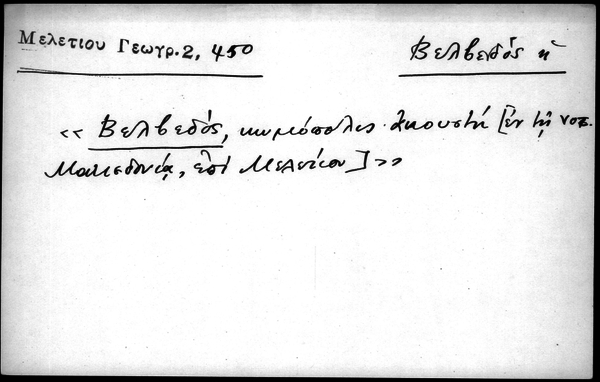 Μελετίου Γεωγρ. 2, 450
Βελβεδός ἡ
«Βελβεδός, κωμόπολις ἀκουστή [ἐν τῇ νοτ.
Μακεδονίᾳ, ἐπὶ Μελετίου]»